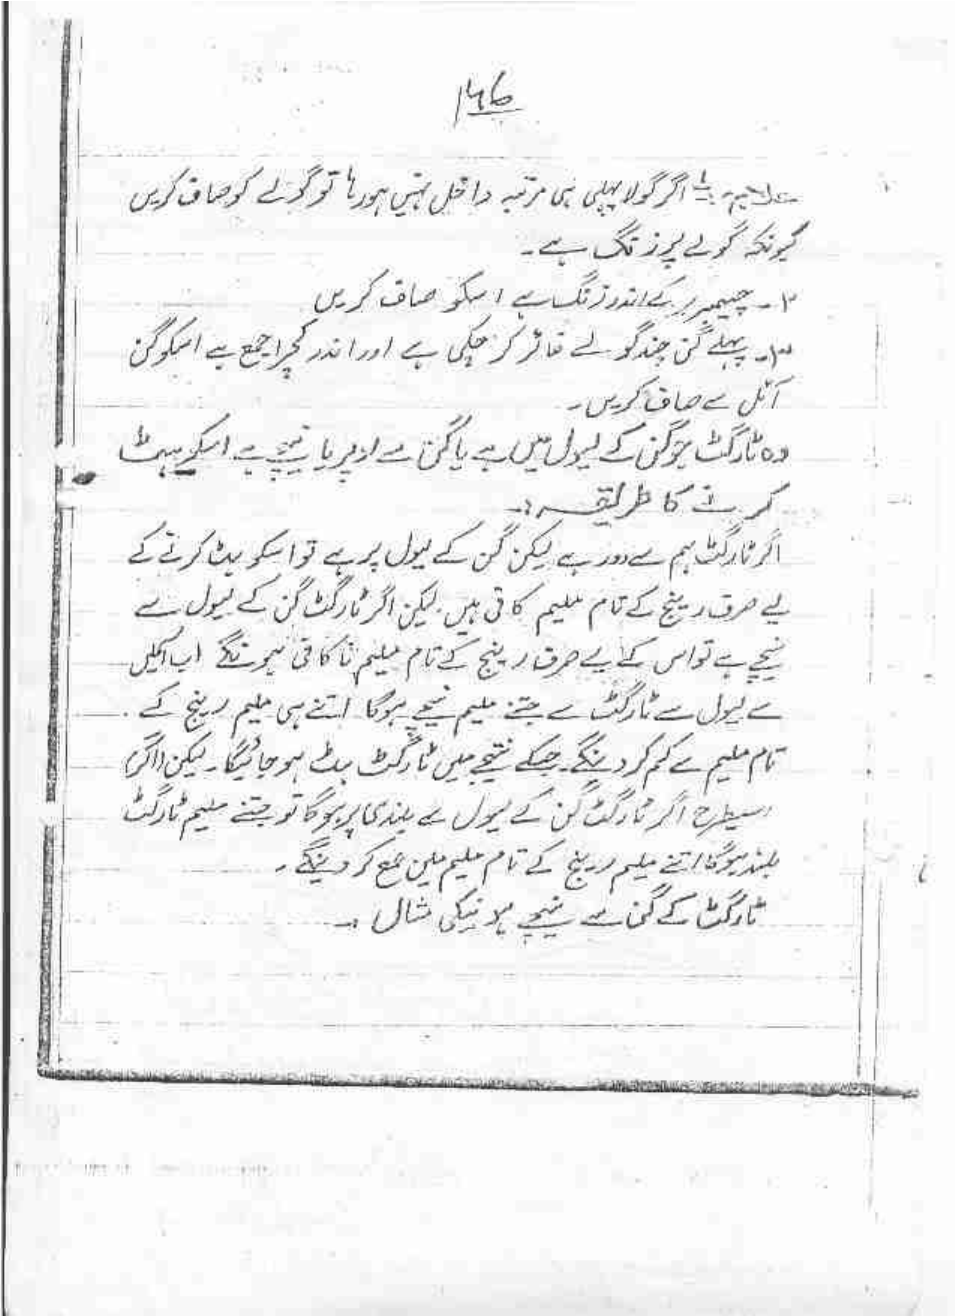 ۱۴۶
علاج:۔ ۱ اگر گولا پہلی ہی مرتبہ داخل نہیں ہورہا تو گولے کو صاف کریں
کیونکہ گولے پر زنگ ہے۔
۲۔ چیمبر کے اندر زنگ ہے اسکو صاف کریں
۳۔ پہلے گن چند گولے فائر کر چکی ہے اور اندر کچرا جمع ہے اسکو گن
آئل سے صاف کریں۔
وہ ٹارگٹ جو گن کے لیول میں ہے یا گن سے اوپر یا نیچے ہے اسکو ہٹ
کرنے کا طریقہ:۔
اگر ٹارگٹ ہم سے دور ہے لیکن گن کے لیول پر ہے تو اسکو ہٹ کرنے کے
لیے صرف رینج کے تام ملیم کافی ہیں لیکن اگر ٹارگٹ گن کے لیول سے
نیچے ہے تو اس کے لیے صرف رینج کے تام ملیم ناکافی ہونگے اب
سے لیول سے ٹارگٹ سے جتنے ملیم نیچے ہوگا اتنے ہی ملیم رینج کے
تام ملیم سے کم کر دینگے۔ جسکے نتیجے میں ٹارگٹ ہٹ ہو جائیگا۔ لیکن (اگر)
اسیطرح اگر ٹارگٹ گن کے لیول سے بلندی پر ہوگا تو جتنے ملیم ٹارگٹ
بلند ہوگا اتنے ملیم رینج کے تام ملیم میں جمع کر دینگے۔
ٹارگٹ کے گن سے نیچے ہونیکی مثال:۔